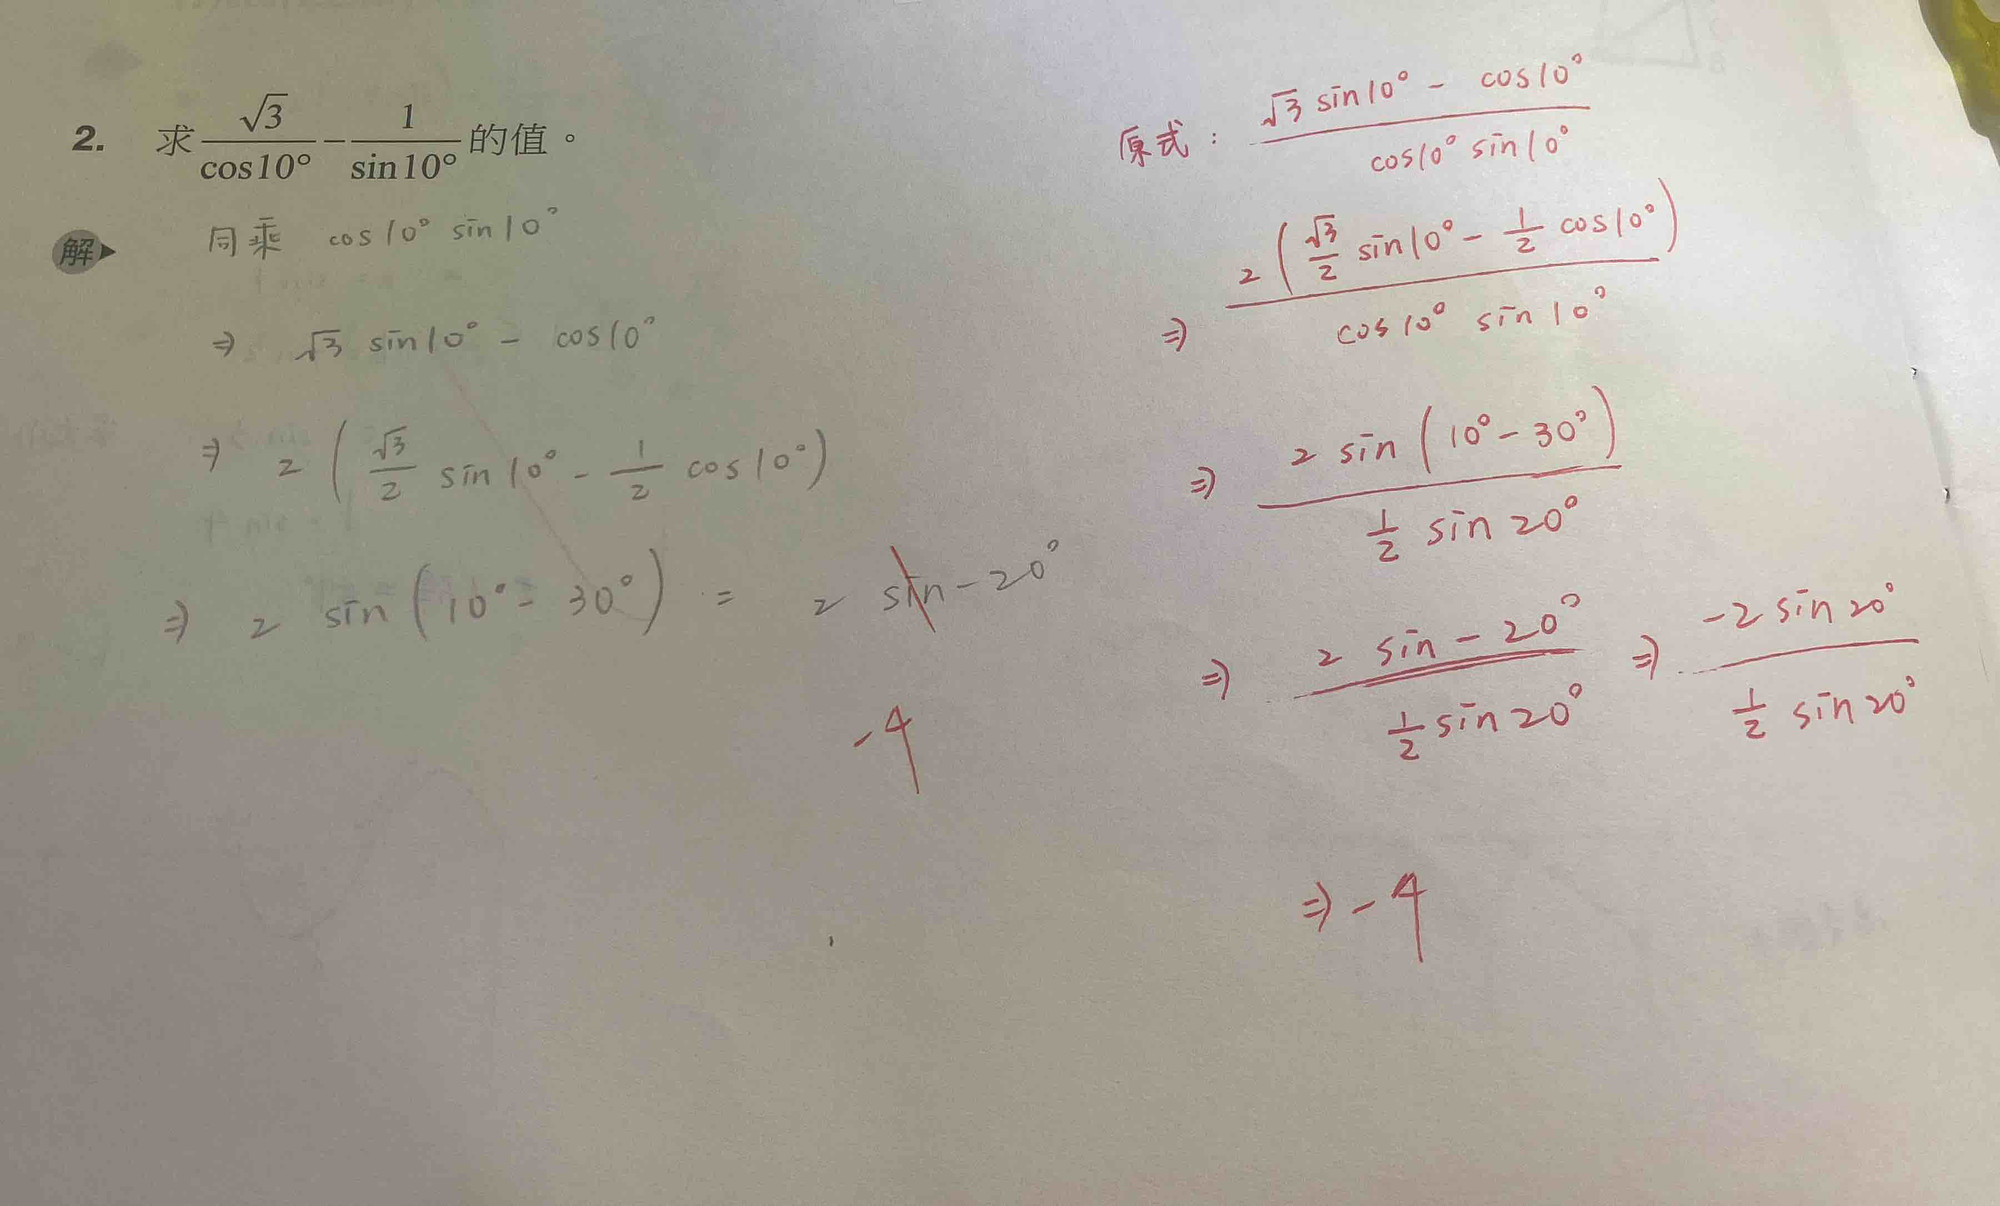 2. 求 √3/cos10° − 1/sin10° 的值。
解 同乘 cos10° sin10°
⇒ √3 sin10° − cos10°
⇒ 2 ( √3/2 sin10° − 1/2 cos10° )
⇒ 2 sin ( 10° − 30° ) = 2 sin −20°
−4
原式 : (√3 sin10° − cos10°) / (cos10° sin10°)
⇒ 2 ( √3/2 sin10° − 1/2 cos10° ) / (cos10° sin10°)
⇒ 2 sin ( 10° − 30° ) / (1/2 sin20°)
⇒ 2 sin −20° / (1/2 sin20°) ⇒ −2 sin20° / (1/2 sin20°)
⇒ −4